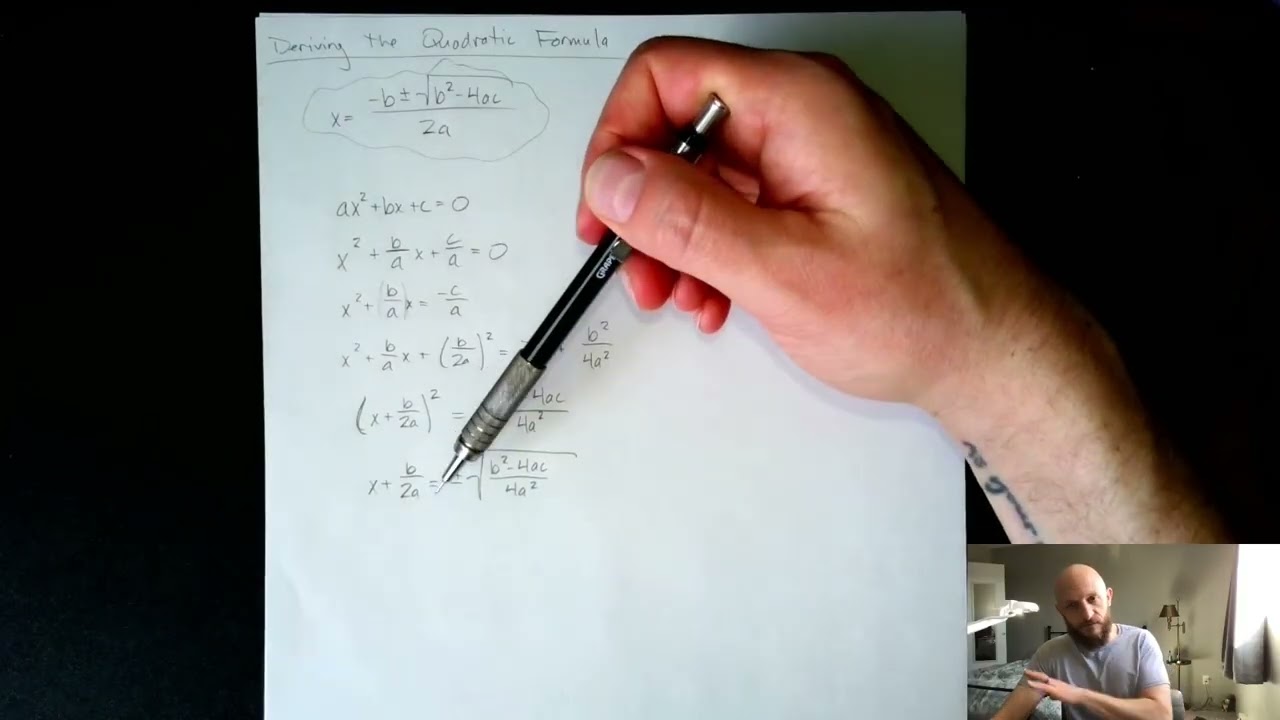 Deriving the Quadratic Formula
x = (-b ± √(b² - 4ac)) / 2a
ax² + bx + c = 0
x² + b/a x + c/a = 0
x² + (b/a)x = -c/a
x² + b/a x + (b/2a)² = b²/4a²
(x + b/2a)² = 4ac/4a²
x + b/2a = ± √((b² - 4ac)/4a²)